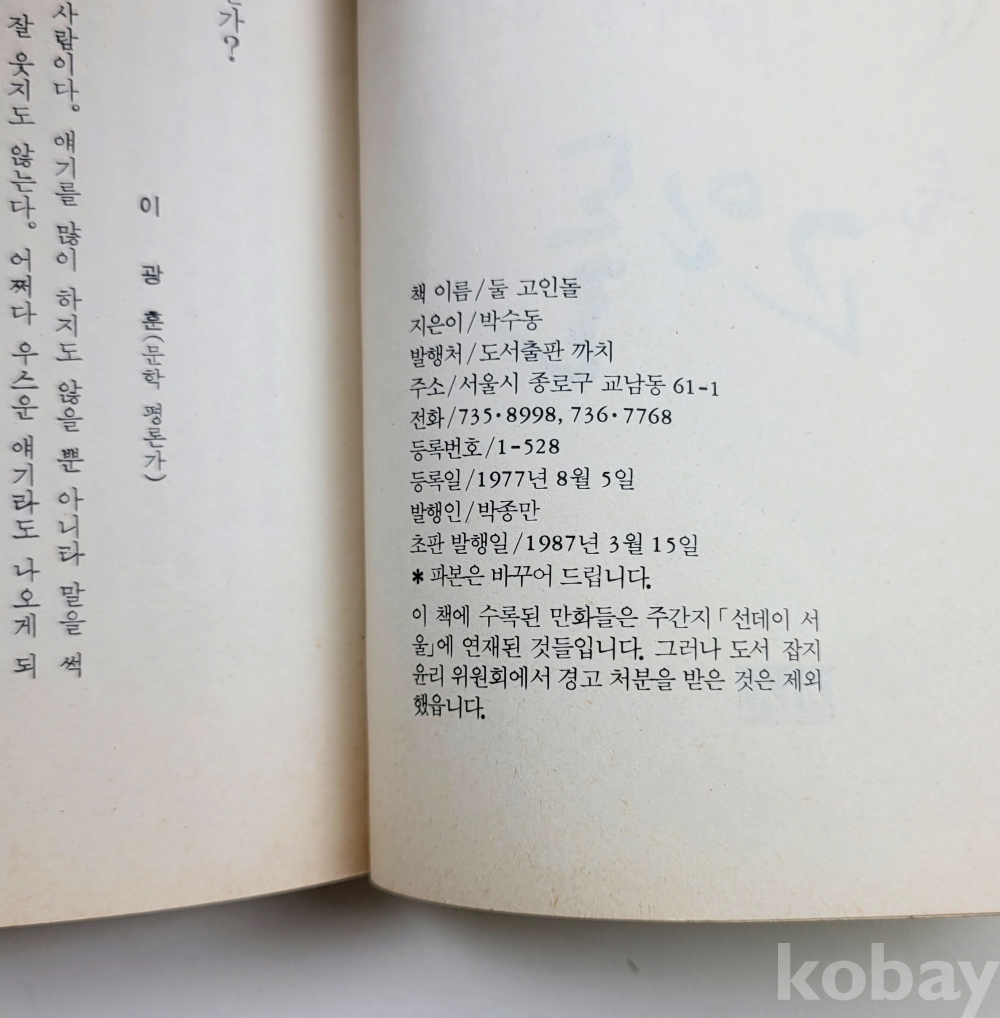 가?
이 광 훈(문학 평론가)
사람이다. 얘기를 많이 하지도 않을 뿐 아니라 말을 썩
잘 웃지도 않는다. 어쩌다 우스운 얘기라도 나오게 되
책 이름/둘 고인돌
지은이/박수동
발행처/도서출판 까치
주소/서울시 종로구 교남동 61-1
전화/735·8998, 736·7768
등록번호/1-528
등록일/1977년 8월 5일
발행인/박종만
초판 발행일/1987년 3월 15일
* 파본은 바꾸어 드립니다.
이 책에 수록된 만화들은 주간지 「선데이 서
울」에 연재된 것들입니다. 그러나 도서 잡지
윤리 위원회에서 경고 처분을 받은 것은 제외
했읍니다.
kobay